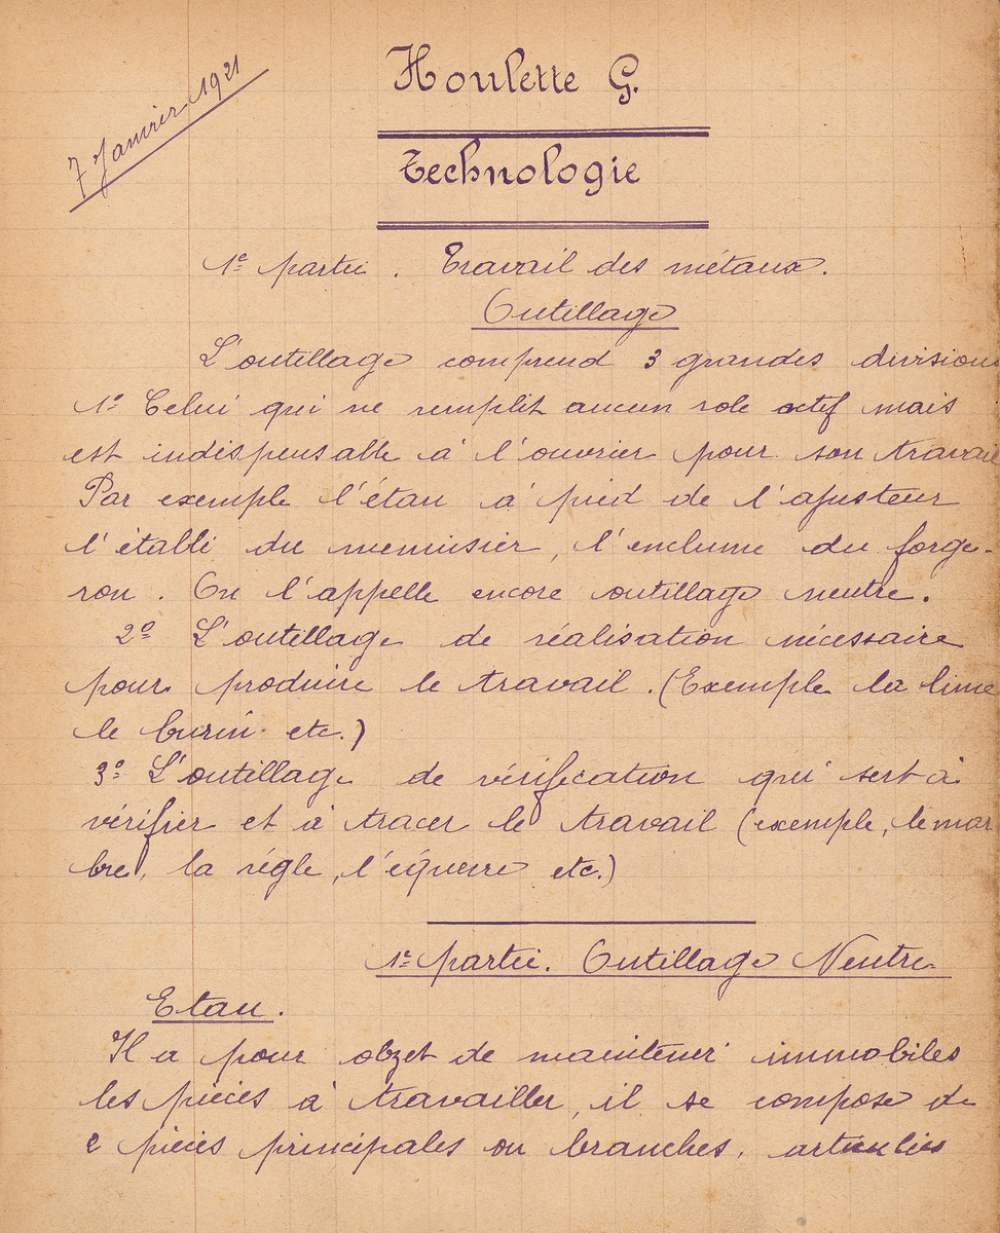 7 Janvier 1921
Houlette G.
Technologie
1e partie. Travail des métaux.
Outillage
L'outillage comprend 3 grandes divisions
1º Celui qui ne remplit aucun role actif mais
est indispensable à l'ouvrier pour son travail
Par exemple l'étau à pied de l'ajusteur
l'établi du menuisier, l'enclume du forge-
ron. On l'appelle encore outillage neutre.
2º L'outillage de réalisation nécessaire
pour produire le travail. (Exemple la lime
le burin etc.)
3º L'outillage de vérification qui sert à
vérifier et à tracer le travail (exemple, le mar
bre, la règle, l'équerre etc.)
1e partie. Outillage Neutre
Etau.
Il a pour objet de maintenir immobiles
les pièces à travailler, il se compose de
2 pièces principales ou branches, articulées